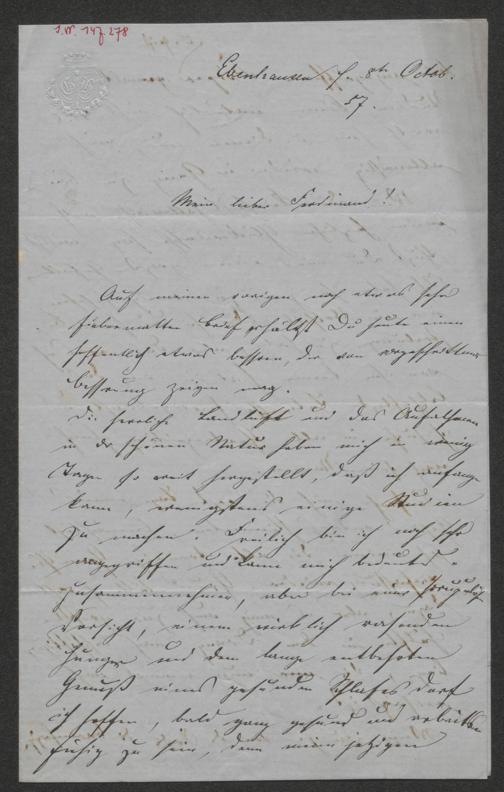 Ebenhausen d. 8th Octob.
57.
Mein lieber Ferdinand!
Auf meinen vorigen noch etwas sehr
fiebermatten Brief erhältst Du heute einen
hoffentlich etwas bessren, der von vorgeschrittener
Besserung zeugen mag.
Die herrliche Landluft und das Aufathmen
in der schönen Natur haben mich in wenig
Tagen so weit hergestellt, daß ich anfangen
kann, wenigstens einige Studien
zu machen. Freilich bin ich noch sehr
angegriffen und kann mich bedeutend
zusammennehmen, aber bei einer
Vorsicht, einem wirklich rasenden
Hunger und dem lange entbehrten
Genuß eines gesunden Schlafes darf
ich hoffen, bald ganz gesund und arbeits
fähig zu sein, denn meine jetzigen